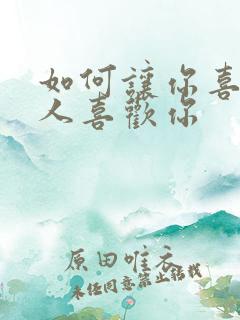 如何讓你喜
人喜歡你
原田唯衣
未经同意禁止转载